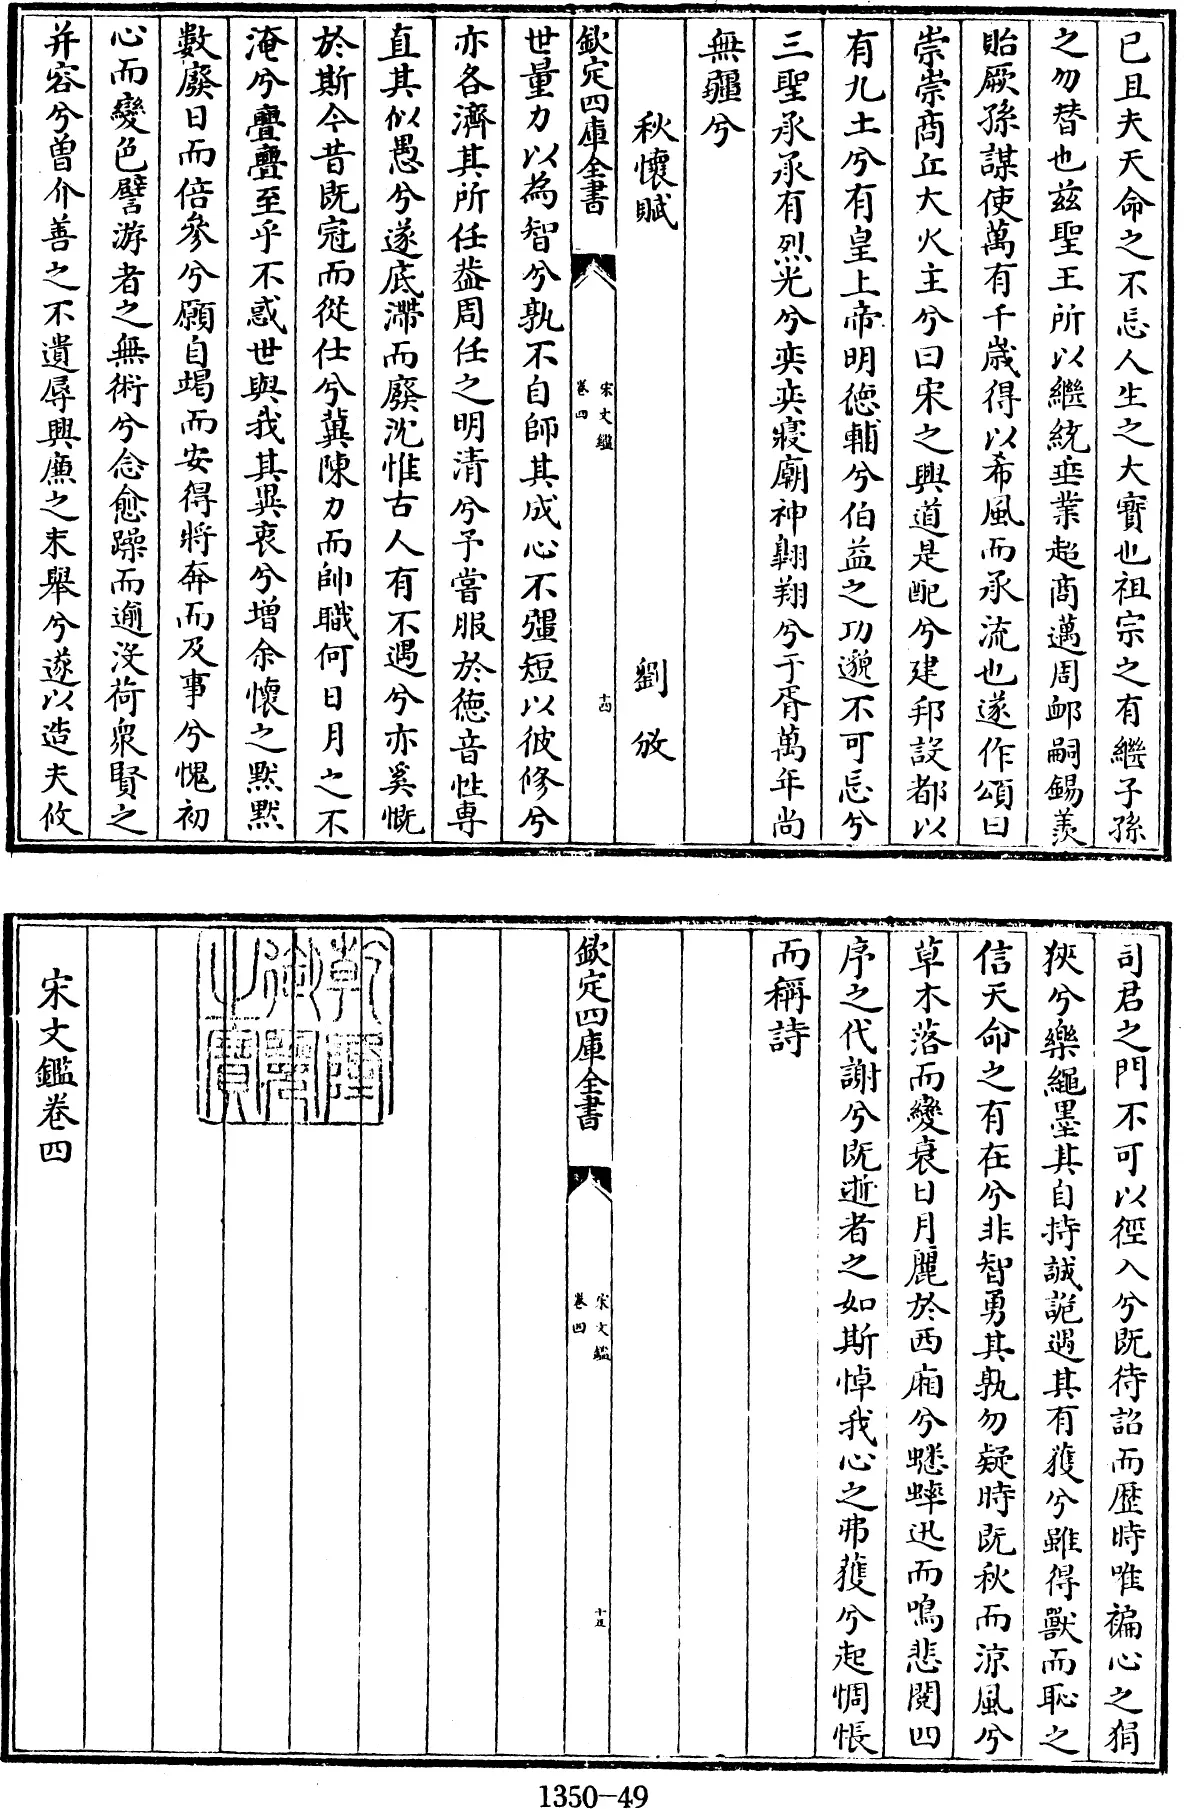 已且夫天命之不忘人生之大寳也祖宗之有繼子孫
之勿替也兹聖王所以繼統垂業超商邁周邮嗣錫羨
貽厥孫謀使萬有千嵗得以希風而承流也遂作頌曰
崇崇商丘大火主兮曰宋之興道是配兮建邦設都以
有九土兮有皇上帝明德輔兮伯益之功邈不可忘兮
三聖承承有烈光兮奕奕寢廟神翺翔兮于胥萬年尚
無疆兮
秋懷賦 劉攽
欽定四庫全書 宋文鑑 卷四 十四
世量力以為智兮孰不自師其成心不彊短以彼修兮
亦各濟其所任葢周任之明清兮予嘗服於德音性専
直其似愚兮遂底滯而廢沈惟古人有不遇兮亦奚慨
於斯今昔既冠而從仕兮冀陳力而帥職何日月之不
淹兮亹亹至乎不惑世與我其異衷兮增余懷之黙黙
數廢日而倍參兮願自竭而安得將奔而及事兮愧初
心而變色譬游者之無術兮念愈躁而逾没荷衆賢之
并容兮曽介善之不遺辱興廉之末舉兮遂以造夫攸
司君之門不可以徑入兮既待詔而歴時唯褊心之狷
狹兮樂繩墨其自持誠詭遇其有獲兮雖得獸而恥之
信天命之有在兮非智勇其孰勿疑時既秋而涼風兮
草木落而變衰日月麗於西廂兮蟋蟀迅而鳴悲閲四
序之代謝兮既逝者之如斯悼我心之弗獲兮起惆悵
而稱詩
欽定四庫全書 宋文鑑 卷四 十五
乾隆御覽之寳
宋文鑑卷四
1350-49